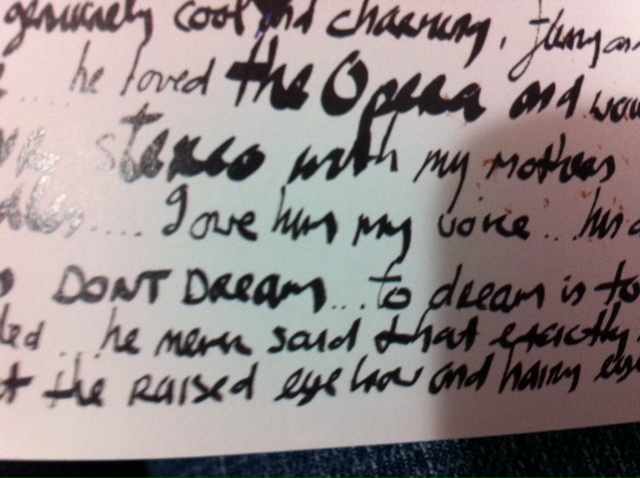 genuinely cool and charming, funny an
... he loved the Opera and wou
stereo with my mothers
.... I owe him my voice .. his
DONT DREAM... to dream is to
led .. he never said that exactly
t the raised eye brow and hairy eye